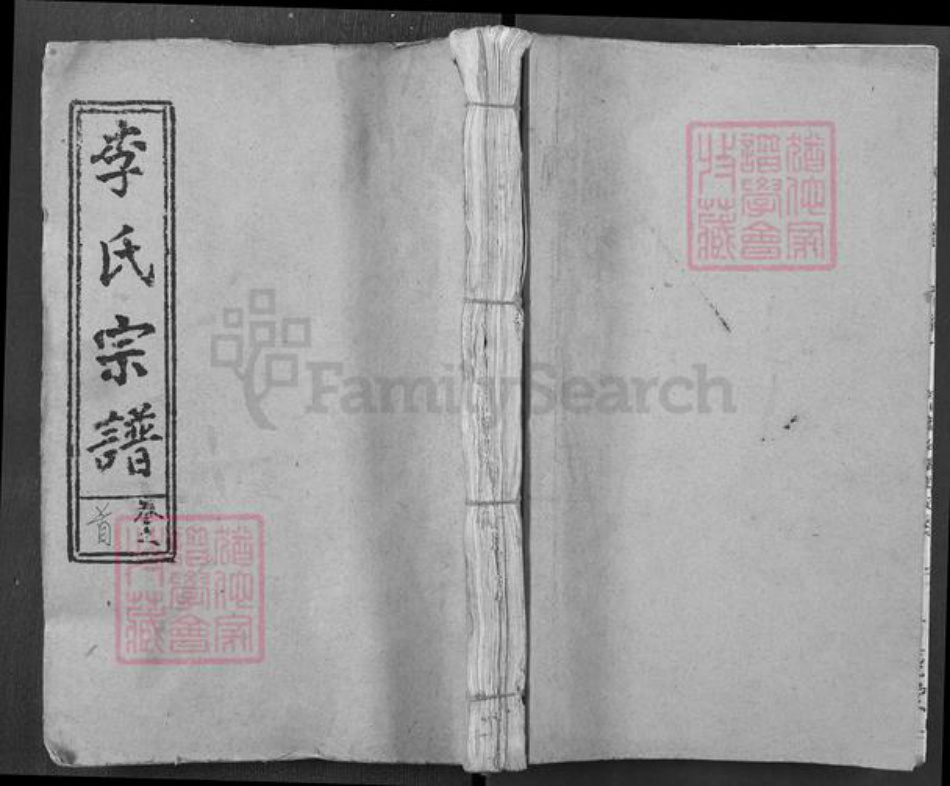 李氏宗譜
卷六
首
FamilySearch
猶他家
譜學會
收藏
猶他家
譜學會
收藏